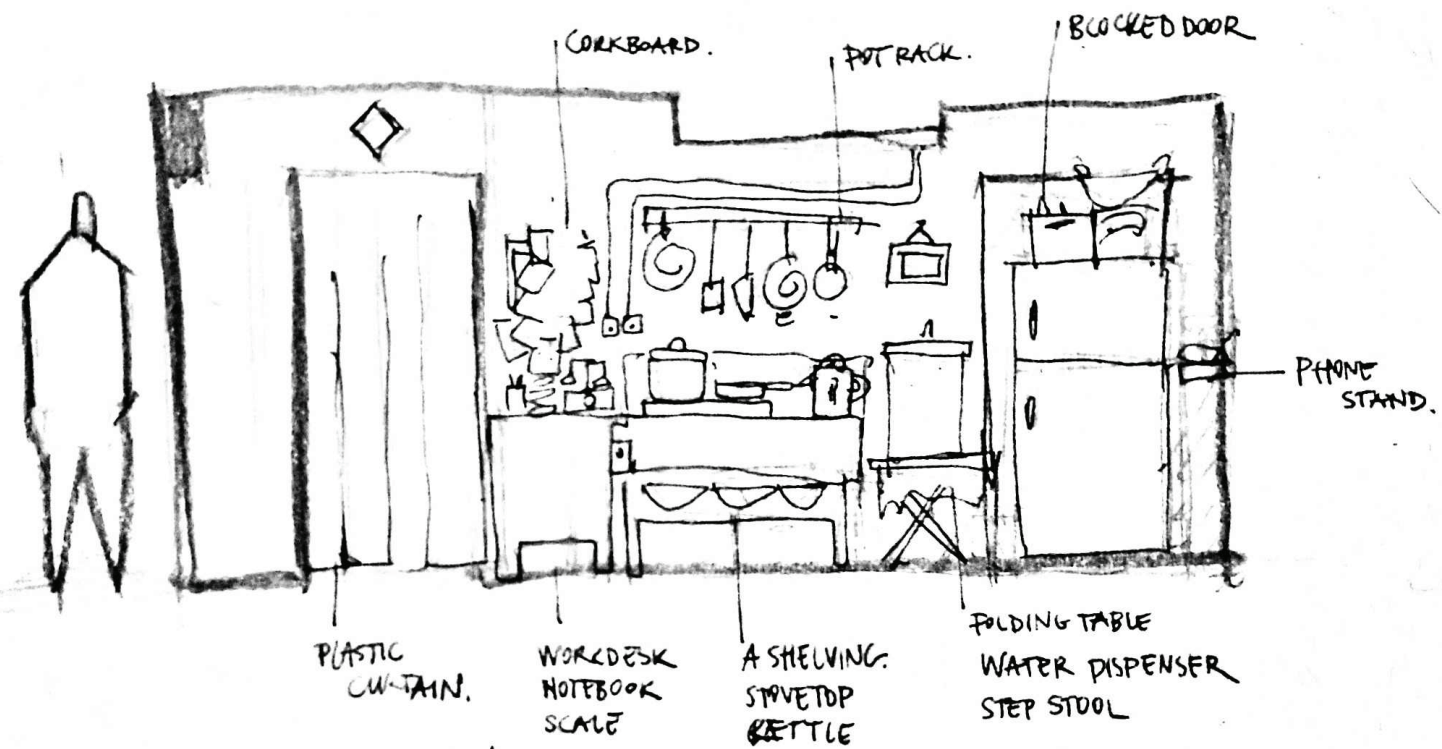 CORKBOARD.
POT RACK.
BLOCKED DOOR
PHONE
STAND.
PLASTIC
CURTAIN.
WORKDESK
NOTEBOOK
SCALE
A SHELVING.
STOVETOP
KETTLE
FOLDING TABLE
WATER DISPENSER
STEP STOOL